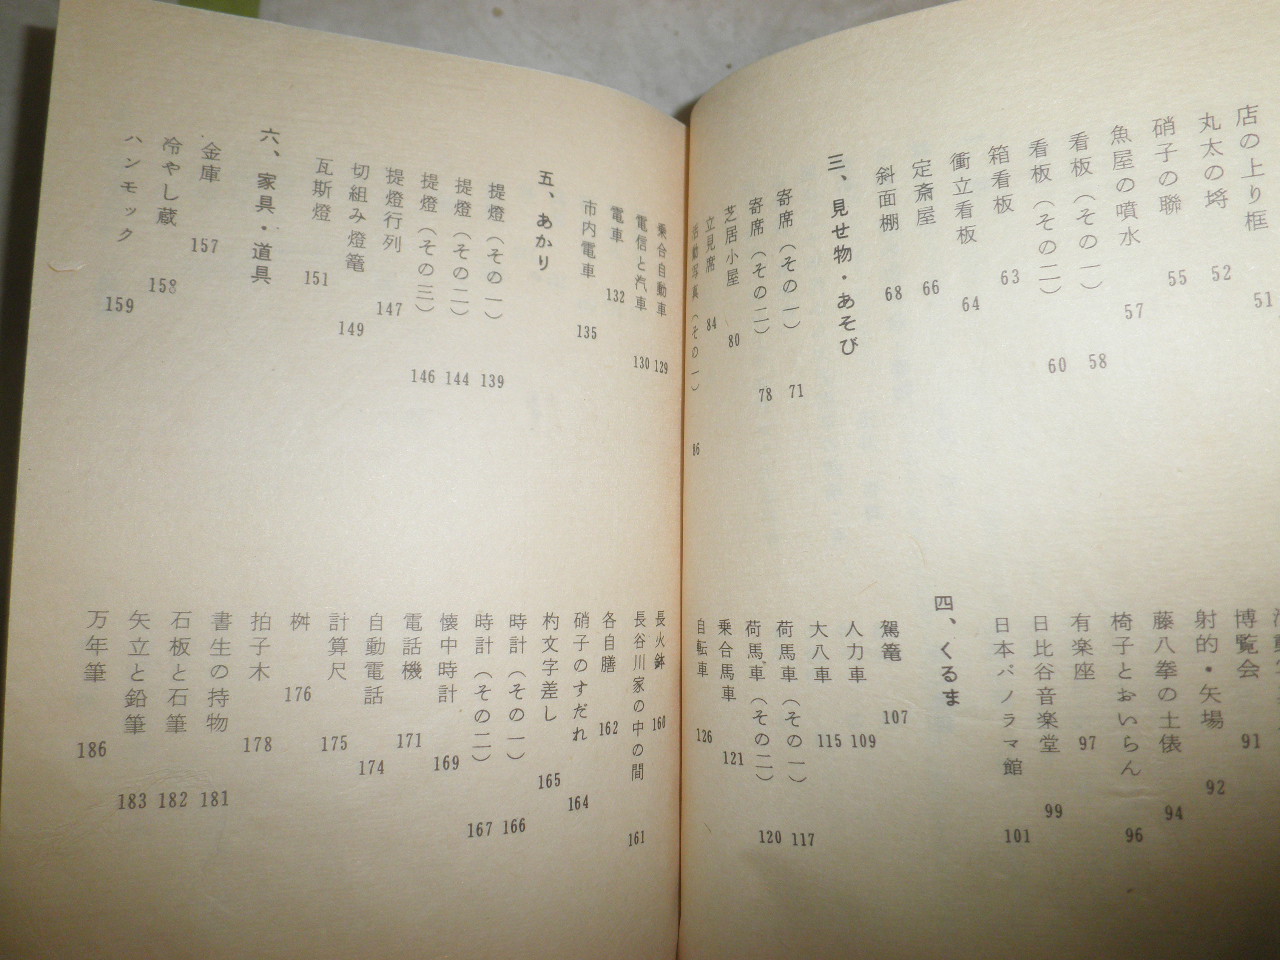 店の上り框 51
丸太の埒 52
硝子の聯 55
魚屋の噴水 57
看板（その一） 58
看板（その二） 60
箱看板 63
衝立看板 64
定斎屋 66
斜面棚 68
三、見せ物・あそび
寄席（その一） 71
寄席（その二） 78
芝居小屋 80
立見席 84
活動写真（その一） 86
博覧会 91
射的・矢場 92
藤八拳の土俵 94
椅子とおいらん 96
有楽座 97
日比谷音楽堂 99
日本パノラマ館 101
四、くるま
駕籠 107
人力車 109
大八車 115
荷馬車（その一） 117
荷馬車（その二） 120
乗合馬車 121
自転車 126
乗合自動車 129
電信と汽車 130
電車 132
市内電車 135
五、あかり
提燈（その一） 139
提燈（その二） 144
提燈（その三） 146
提燈行列 147
切組み燈籠 149
瓦斯燈 151
六、家具・道具
金庫 157
冷やし蔵 158
ハンモック 159
長火鉢 160
長谷川家の中の間 161
各自膳 162
硝子のすだれ 164
杓文字差し 165
時計（その一） 166
時計（その二） 167
懐中時計 169
電話機 171
自動電話 174
計算尺 175
桝 176
拍子木 178
書生の持物 181
石板と石筆 182
矢立と鉛筆 183
万年筆 186